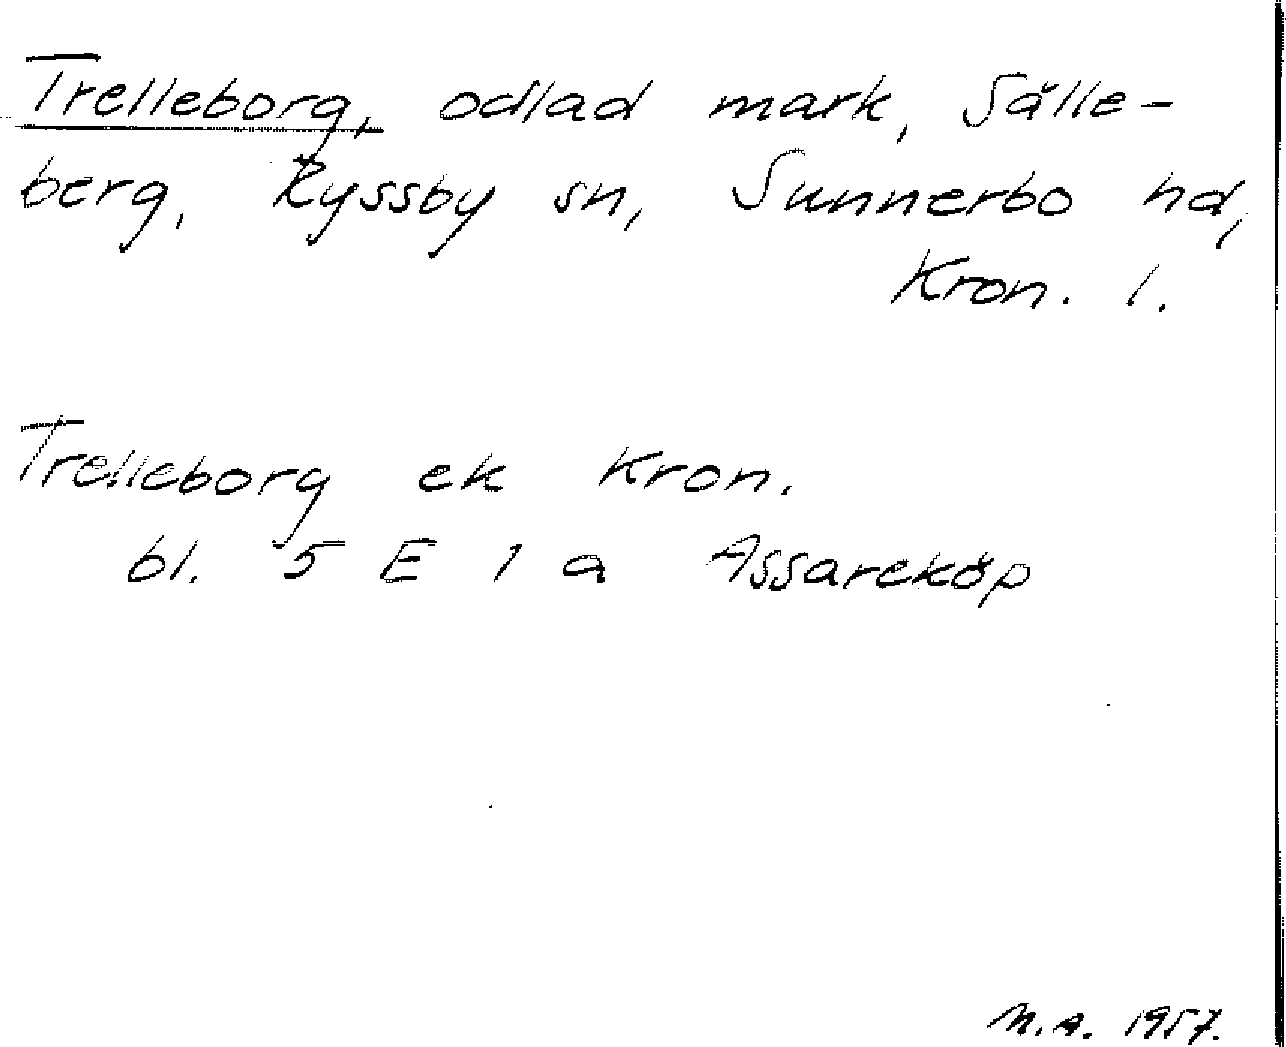 Trelleborg, odlad mark, Sälle-
berg, Ryssby sn, Sunnerbo hd,
Kron. l.
Trelleborg ek Kron.
bl. 5 E 1 a Assareköp
N.A. 1957.